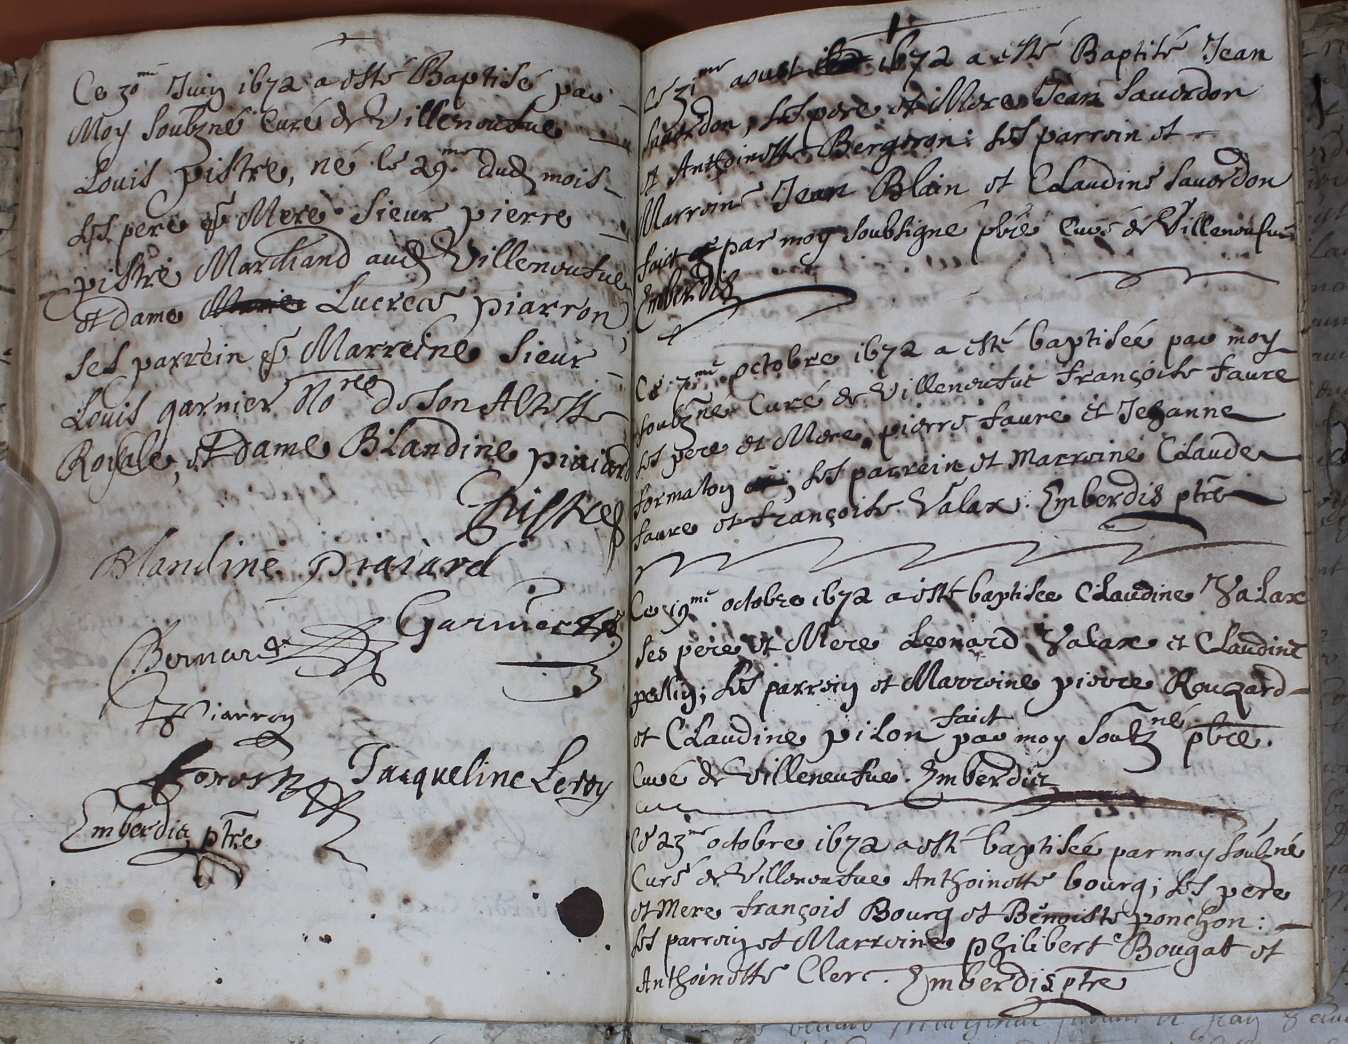 Ce 30me Juin 1672 a esté Baptisé par
Moy Soubzné Curé de Villeneufue
Louis pistre, né le 29me dud mois
ses pere & Mere Sieur pierre
pistre Marchand aud Villeneufue
et dame Lucrece piarron
ses parrein & Marreine Sieur
Louis garnier No.re de son Altesse
Royale, et dame Blandine piraiard
Pistre
Blandine piraiard
Garnier
Bernard
Piarron
Jacqueline Leroy
Emberdis ptre
Ce 31me aoust 1672 a esté Baptisé Jean
Sauerdon, ses pere et Mere Jean Sauerdon
et Anthoinette Bergeron: ses parroin et
Marroine Jean Blain et CLaudine Sauerdon
faict par moy soubsigné pbre Curé de Villeneufue
Emberdis
Ce octobre 1672 a esté baptisée par moy
soubzné Curé de Villeneufue françoise faure
ses pere et Mere pierre faure et Jehanne
formatoy ; ses parrein et Marroine CLaude
faure et françoise Valax. Emberdis ptre
Ce 19me octobre 1672 a esté baptisée CLaudine Valax
ses pere et Mere Leonard Valax et CLaudine
; ses parroin et Marroine pierre Rougard
et CLaudine piLon faict par moy Soubzné pbre.
Curé de Villeneufue. Emberdis
Ce 23me octobre 1672 a esté baptisée par moy soubzné
Curé de Villeneufue Anthoinette bourg; ses pere
et Mere françois Bourg et Benoiste ponchon:
ses parroin et Marroine philibert Bougat et
Anthoinette Clerc. Emberdis ptre